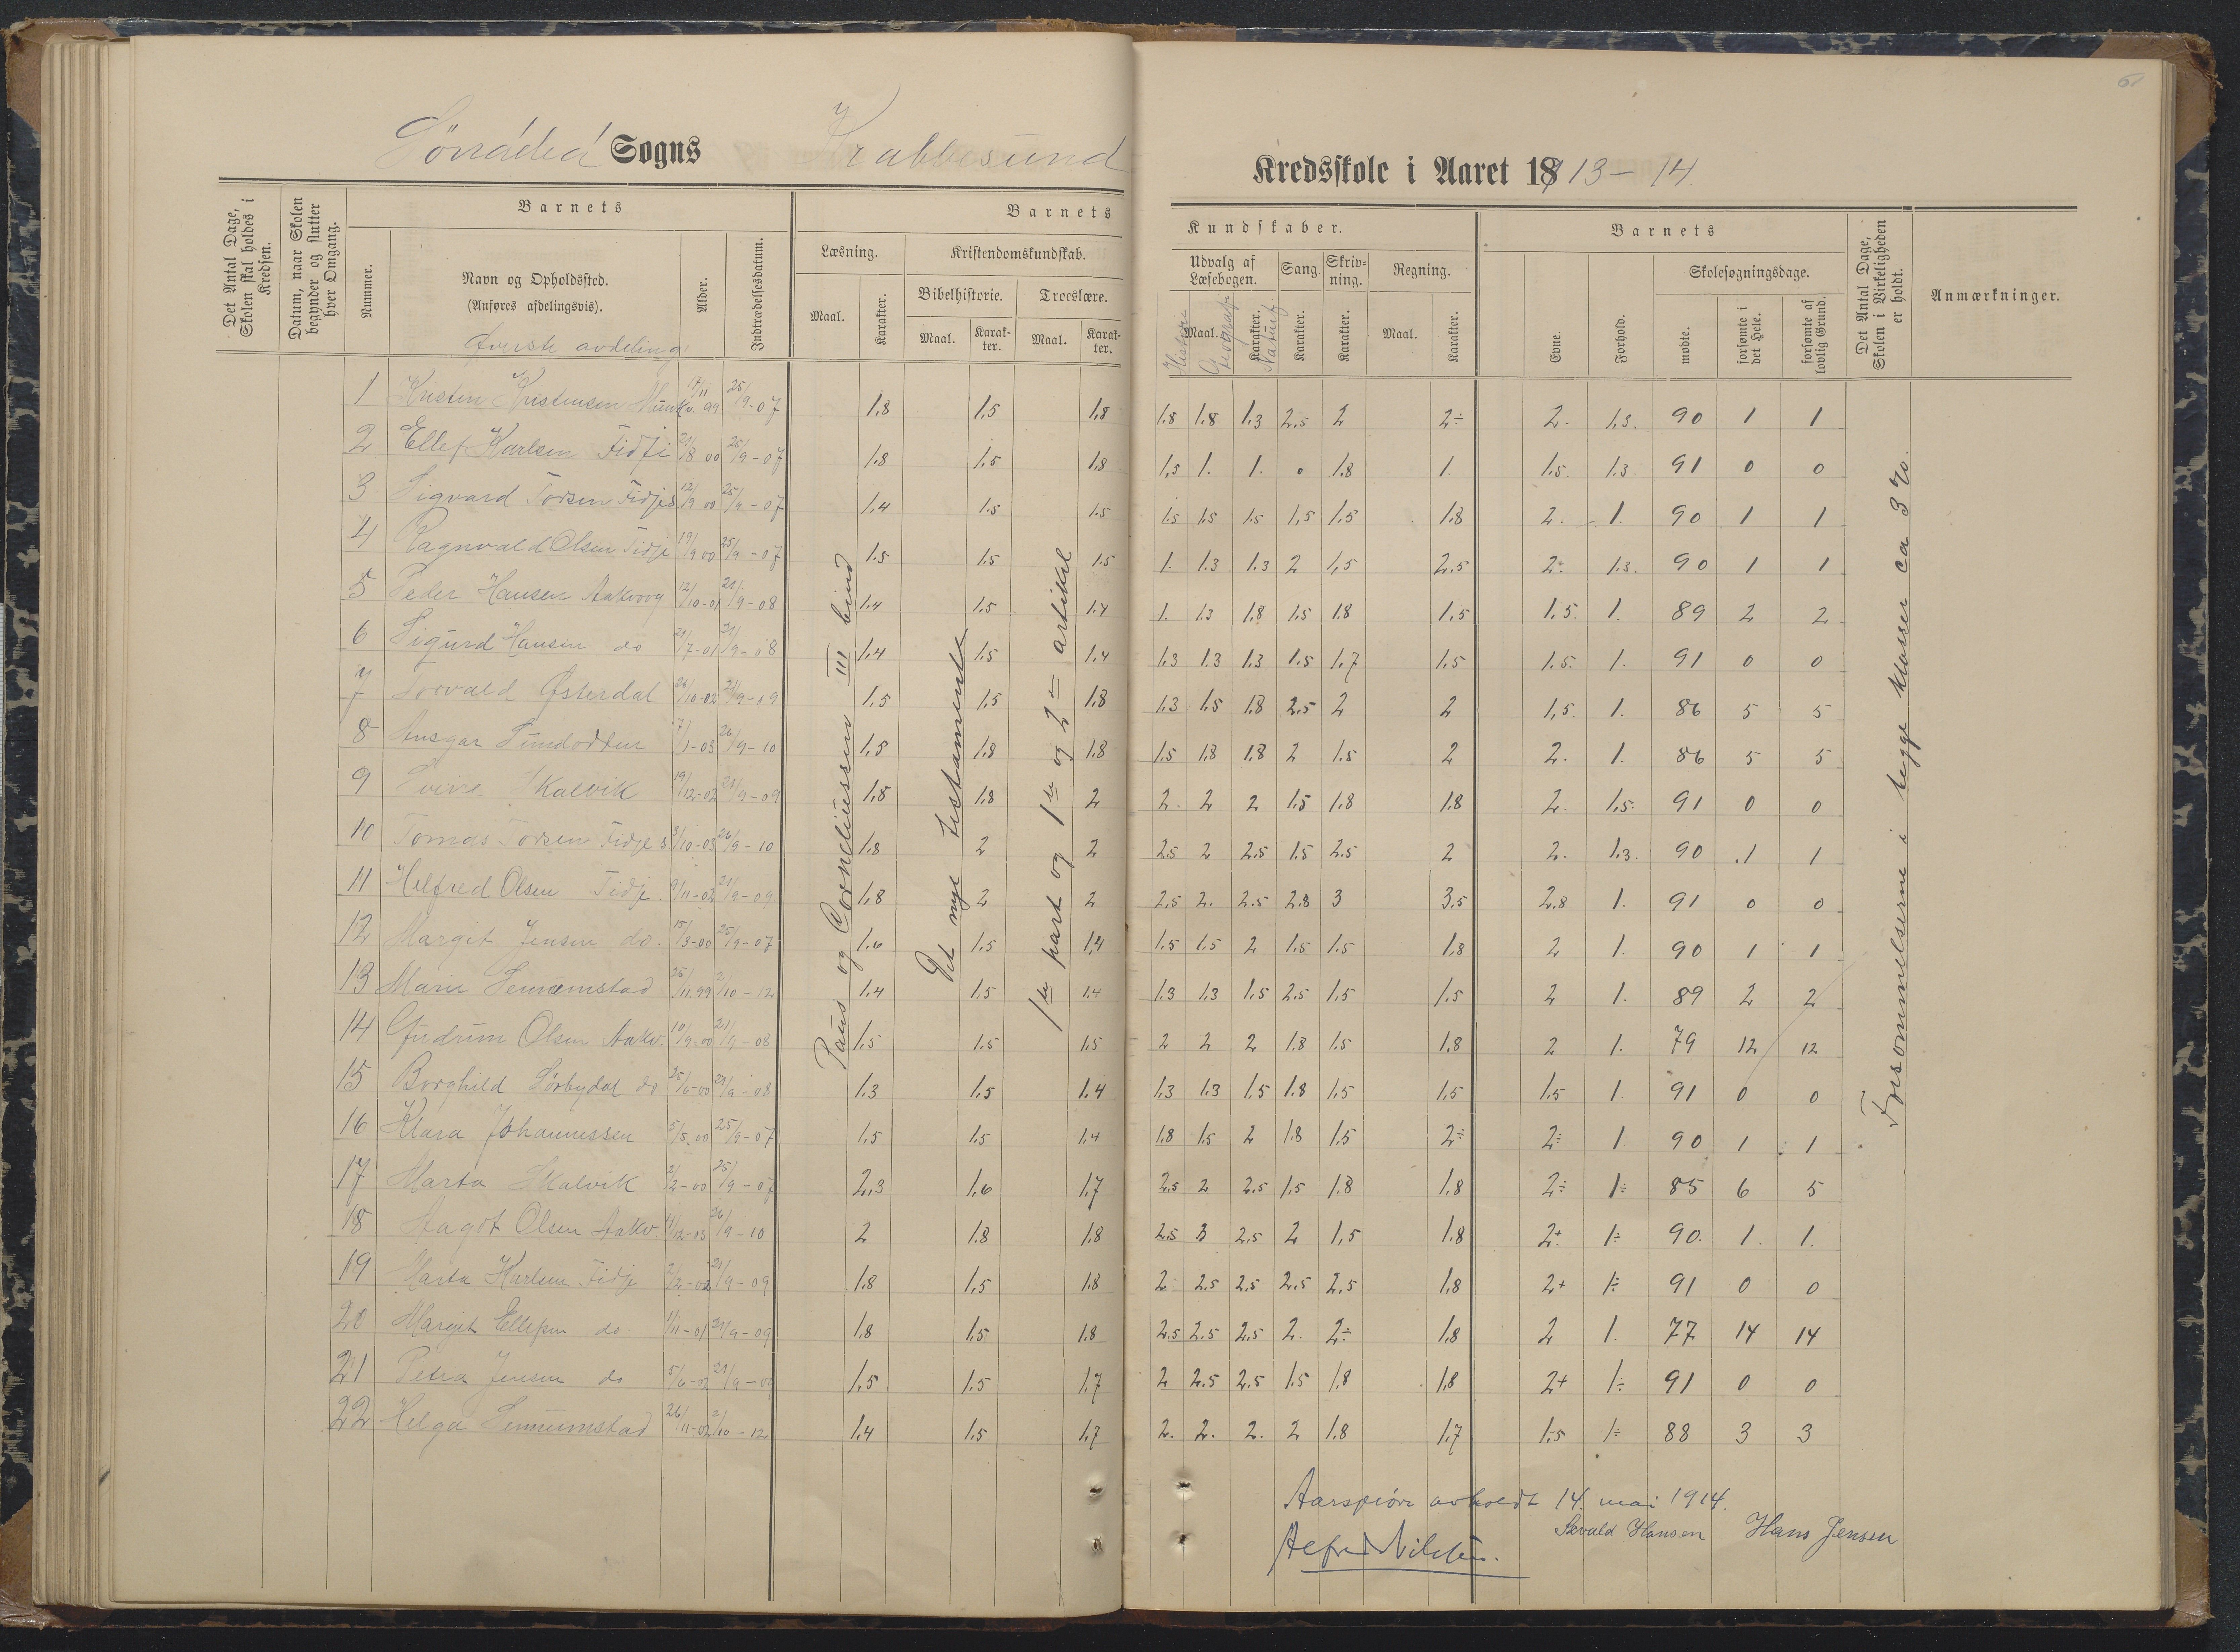 Sogns Krabbesund Kredsskole i Aaret 1813-14.
Det Antal Dage, Skolen skal holdes i Kredsen.
Datum, naar Skolen begynder og slutter hver Omgang.
Barnets
Nummer.
Navn og Opholdssted.
(Anføres afdelingsvis).
Øverste avdeling
Alder.
Indtrædelsesdatum.
Barnets Kundskaber.
Læsning.
Maal.
Karakter.
Kristendomskundskab.
Bibelhistorie.
Maal.
Karakter.
Troeslære.
Maal.
Karakter.
Udvalg af Læsebogen.
Maal.
Karakter.
Historie
Geografi
Naturf
Sang.
Karakter.
Skrivning.
Karakter.
Regning.
Maal.
Karakter.
Barnets
Evne.
Forhold.
Skolesøgningsdage.
mødte.
forsømte i det Hele.
forsømte af lovlig Grund.
Det Antal Dage, Skolen i Virkeligheden er holdt.
Anmærkninger.
1 Kristen Kristensen 17/11 99 25/9-07 1,8 1,5 1,8 1.8 1.8 1.3 2.5 2 2÷ 2. 1,3. 90 1 1
2 Ellef Karlsen Fidje 21/8 00 25/9-07 1.8 1,5 1.8 1,5 1. 1. 0 1.8 1. 1.5 1.3 91 0 0
3 Sigvard Torsen Fidje 12/9 00 25/9-07 1.4 1.5 1.5 1.5 1.5 1.5 1,5 1.5 1.8 2. 1. 90 1 1
4 Ragnvald Olsen Fidje 19/9 00 25/9-07 1.5 1.5 1.5 1. 1.3 1.3 2 1,5 2.5 2÷ 1.3. 90 1 1
5 Peder Hansen Aakvaag 12/10-01 21/9-08 1.4 1.5 1.4 1. 1.3 1.8 1.5 1.8 1,5 1.5. 1. 89 2 2
6 Sigurd Hansen do 21/7-01 21/9-08 1.4 1.5 1.4 1.3 1.3 1.3 1.5 1,7 1.5 1.5. 1. 91 0 0
7 Torvald Østerdal 26/10-02 21/9-09 1,5 1,5 1.8 1.3 1.5 1.8 2.5 2 2 1,5. 1. 86 5 5
8 Ansgar Sundodden 7/1-03 26/9-10 1,5 1.8 1.8 1.5 1.8 1.8 2 1.5 2 2. 1. 86 5 5
9 Sverre Skalvik 19/12-02 21/9-09 1,8 1.8 2 2. 2 2 1.5 1.8 1.8 2. 1,5. 91 0 0
10 Tomas Torsen Fidje 3/10-03 26/9-10 1.8 2 2 2.5 2 2.5 1.5 2.5 2 2. 1.3. 90 1 1
11 Helfred Olsen Fidje. 9/11-02 21/9-09 1,8 2 2 2.5 2. 2.5 2.8 3 3,5 2.8 1. 91 0 0
12 Margit Jensen do. 15/3-00 25/9-07 1.6 1.5 1,4 1.5 1.5 2 1.5 1.5 1.8 2 1. 90 1 1
13 Marie 25/11.99 2/10-12 1.4 1.5 1.4 1.3 1.3 1.5 2.5 1.5 1.5 2 1. 89 2 2
14 Gudrun Olsen Aakv. 10/9-00 21/9-08 1.5 1.5 1.5 2 2 2 1.8 1.5 1.8 2 1. 79 12 12
15 Borghild Sørbydal do 21/9-08 1.3 1.5 1.4 1.3 1.3 1.5 1.8 1.5 1.5 1.5 1. 91 0 0
16 Klara Johannessen 5/5.00 25/9-07 1,5 1.5 1.4 1.8 1.5 2 1.8 1.5 2÷ 2÷ 1 90 1 1
17 Marta Skalvik 2/2-00 25/9-07 2,3 1,6 1,7 2.5 2 2.5 1.5 1.8 1.8 2÷ 1÷ 85 6 5
18 Aagot Olsen Aakv. 4/12-03 26/9-10 2 1.8 1.8 2.5 3 2.5 2 1,5 1.8 2+ 1÷ 90. 1. 1.
19 Marta Karlsen Fidje 2/2-02 21/9-09 1.8 1,5 1.8 2 2.5 2.5 2.5 2,5 1.8 2+ 1÷ 91 0 0
20 Margit Ellefsen do 1/11-01 21/9-09 1.8 1.5 1.8 2.5 2.5 2.5 2. 2÷ 1.8 2 1. 77 14 14
21 Petra Jensen do 5/6-02 21/9-09 1,5 1.5 1,7 2 2.5 2.5 1.5 1.8 1.8 2+ 1÷ 91 0 0
22 Helga 26/11-02 2/10-12 1.4 1.5 1,7 2. 2. 2. 2 1.8 1.7 1.5 1÷ 88 3 3
Paus og Corneliussen III bind
Det nye testamente
1ste part og 1ste og 2den artikel
Forsømmelserne i begge klasser ca 3 %.
Aarsprøve avholdt 14. mai 1914.
Alfred Nilsen. Sævald Hansen Hans Jensen